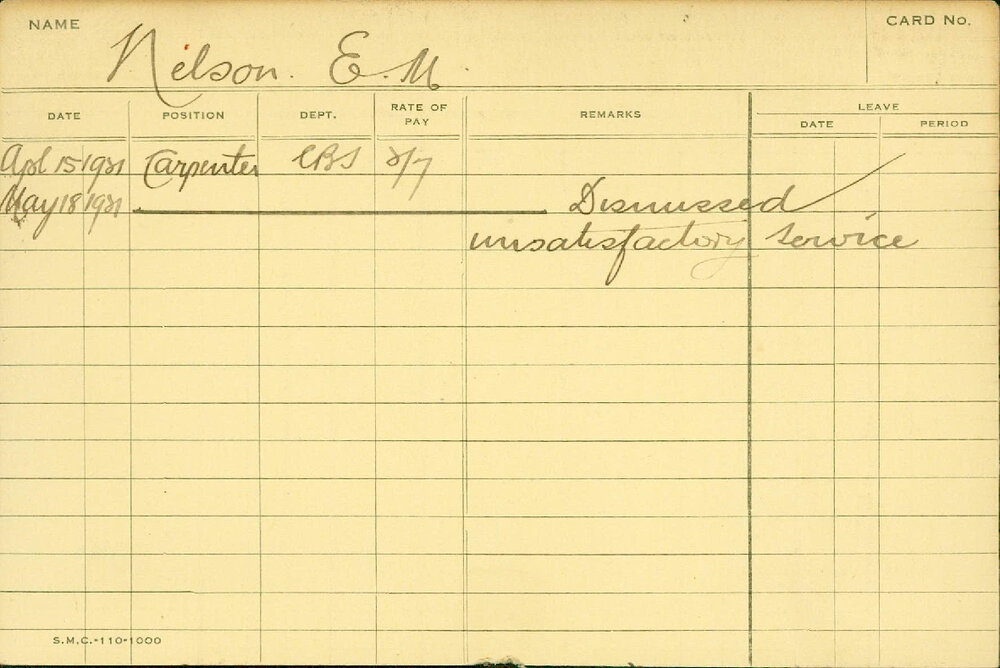 NAME Nelson. E. M. CARD No.
DATE POSITION DEPT. RATE OF PAY REMARKS LEAVE
DATE PERIOD
Apl 15 1921 Carpenter
May 18 1921 Dismissed
unsatisfactory service
S.M.C.-110-1000